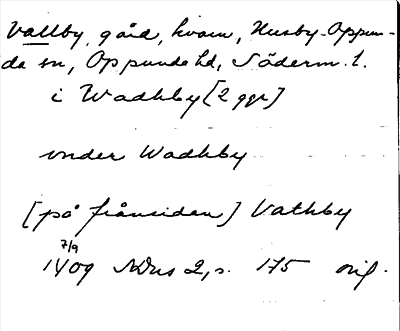 Vallby, gård, kvarn, Husby-Oppun-
da sn, Oppunda hd, Söderm. l.
i Wadhby [2 ggr]
under Wadhby
[på frånsidan] Vathby
7/9
1409 SDns 2, s. 175 orig.